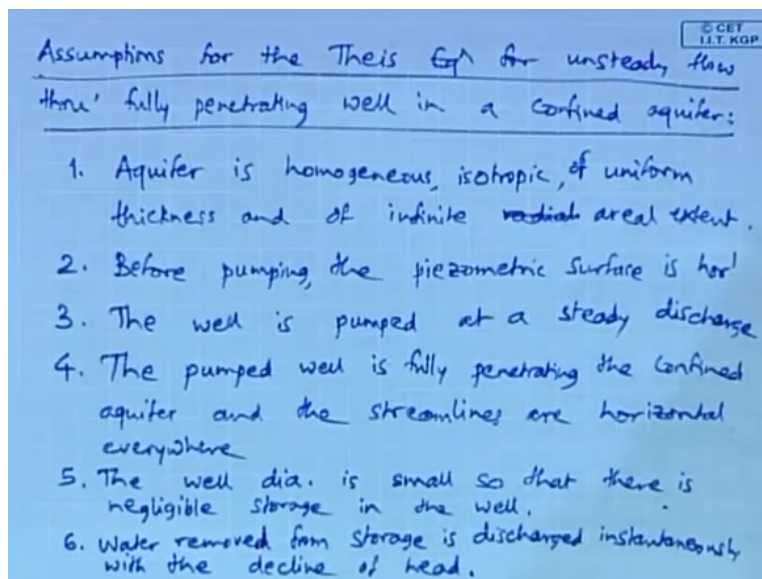 © CET
I.I.T. KGP
Assumptions for the Theis Eqn for unsteady flow
thru' fully penetrating well in a confined aquifer:
1. Aquifer is homogeneous, isotropic, of uniform
thickness and of infinite radial areal extent.
2. Before pumping, the piezometric surface is hor'l
3. The well is pumped at a steady discharge
4. The pumped well is fully penetrating the confined
aquifer and the streamlines are horizontal
everywhere
5. The well dia. is small so that there is
negligible storage in the well.
6. Water removed from storage is discharged instantaneously
with the decline of head.